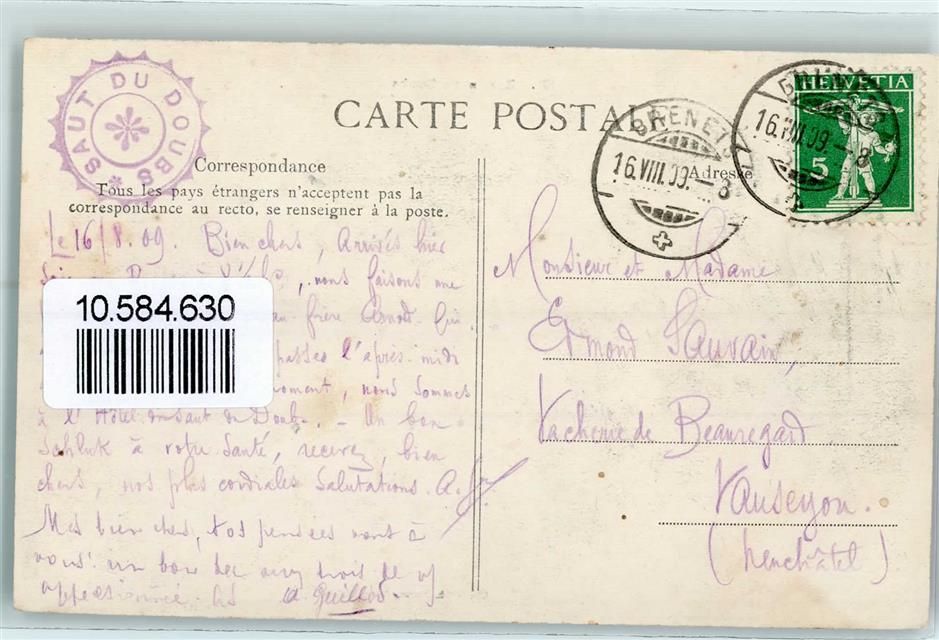 SAUT DU DOUBS
CARTE POSTALE
Correspondance
Tous les pays étrangers n'acceptent pas la
correspondance au recto, se renseigner à la poste.
Adresse
BRENETS
16.VIII.09.-8
BRENETS
16.VIII.09.-8
HELVETIA
5
Le 16/8.09. Bien chers, Arrivés hier
nous faisons une
10.584.630
frère Arnold. Qui
passer l'après midi
moment, nous sommes
à l'Hôtel du Saut du Doubs. - Un bon
Schluk à votre Santé, recevez, bien
chers, nos plus cordiales Salutations. A.
Mes bien chers, nos pensées vont à
vous! un bon bec
A Guillod
Monsieur et Madame
Edmond Sauvain,
Vacherie de Beauregard
Vauseyon.
(Neuchâtel)